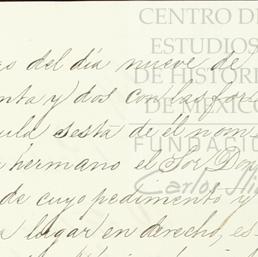 CENTRO DE
ESTUDIOS
DE HISTORI
DE MÉXICO
FUNDACIÓ
Carlos Sl
es del día nueve de
enta y dos con las for
ula sesta de él nom
hermano el Sor Don
de cuyo pedimento y
lugar en derecho, es